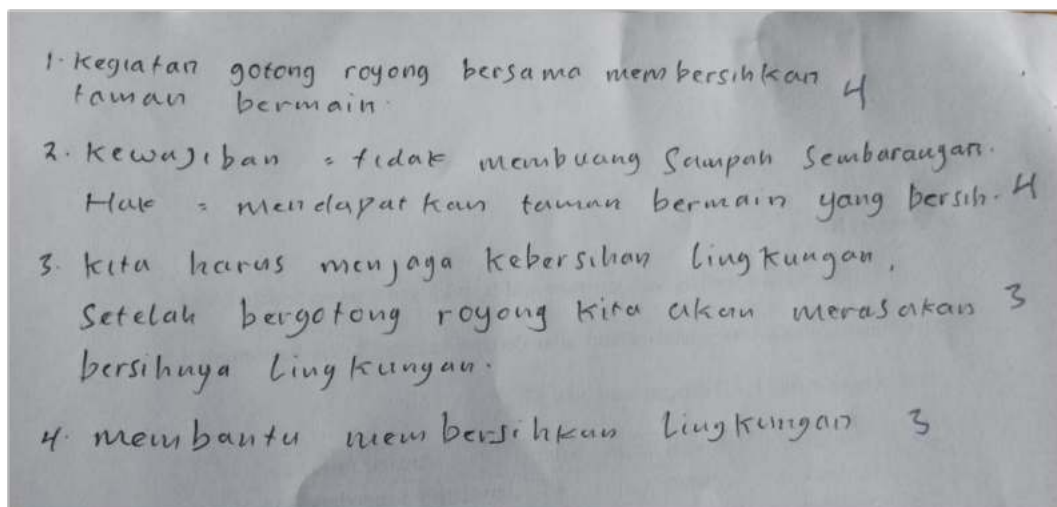 1. Kegiatan gotong royong bersama membersihkan 4
taman bermain.
2. Kewajiban = tidak membuang Sampah Sembarangan.
Hak = mendapatkan taman bermain yang bersih. 4
3. Kita harus menjaga kebersihan lingkungan,
Setelah bergotong royong kita akan merasakan 3
bersihnya Lingkungan.
4. membantu membersihkan Lingkungan 3